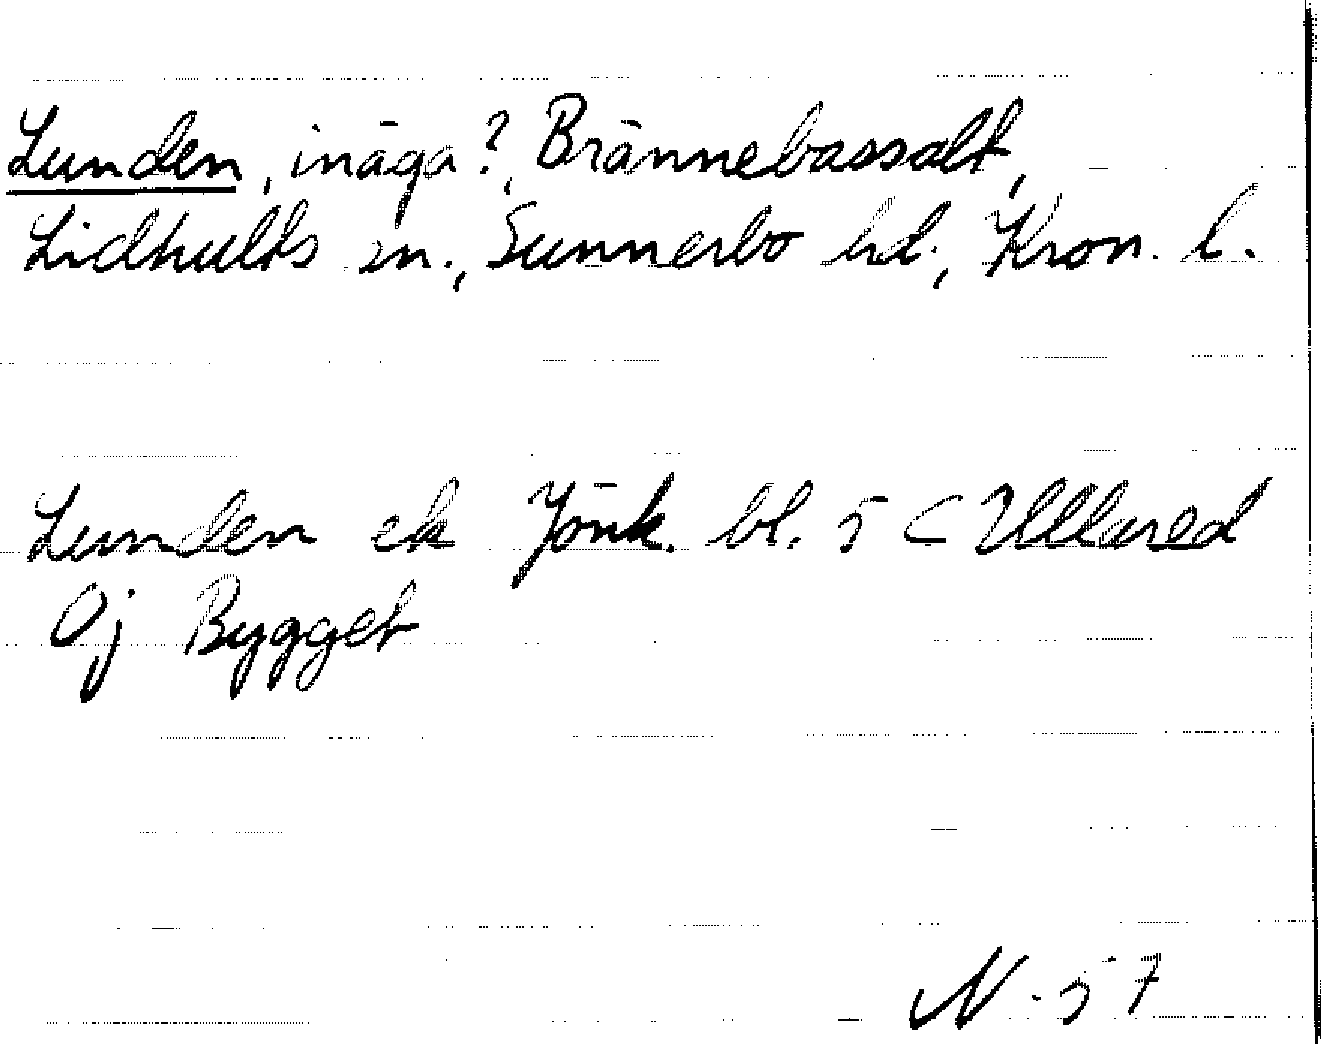 Lunden, inäga?, Brännebassalt,
Lidhults sn., Sunnerbo hd., Kron. l.
Lunden ek Jönk. bl. 5 C Ullared
Oj Bygget
N. 57